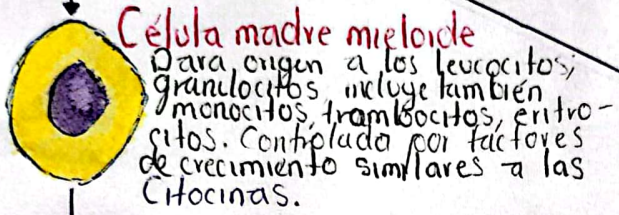 Célula madre mieloide
Dara origen a los leucocitos;
granulocitos incluye también
monocitos, trombocitos, eritro-
citos. Controlado por factores
de crecimiento similares a las
Citocinas.